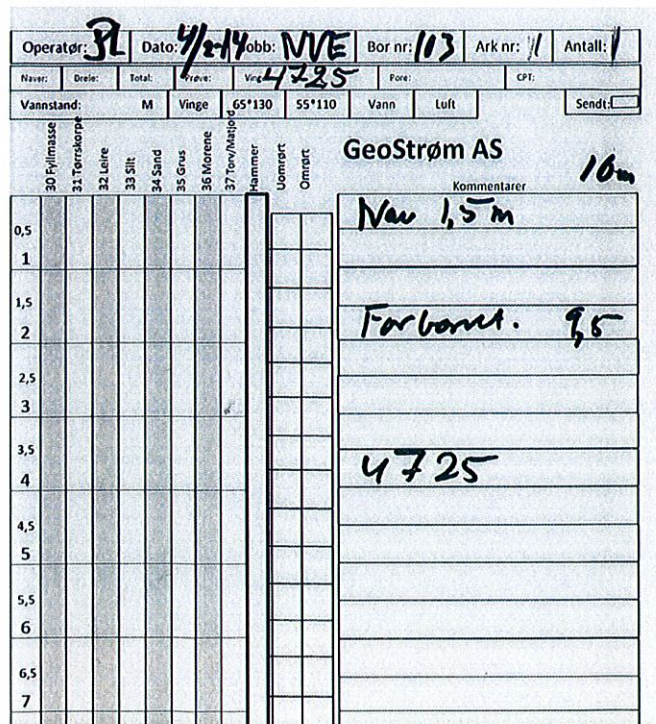 Operatør: JL Dato: 4/2-14 Jobb: NVE Bor nr: 103 Ark nr: 1 Antall: 1
Naver: Dreie: Total: Prøve: Ving 4725 Pore: CPT:
Vannstand: M Vinge 65*130 55*110 Vann Luft Sendt:
30 Fyllmasse
31 Tørrskorpe
32 Leire
33 Silt
34 Sand
35 Grus
36 Morene
37 Torv/Matjord
Hammer
Uomrørt
Omrørt
GeoStrøm AS
10m
Kommentarer
Nav 1,5 m
0,5
1
1,5
Forboret. 9,5
2
2,5
3
3,5
4725
4
4,5
5
5,5
6
6,5
7